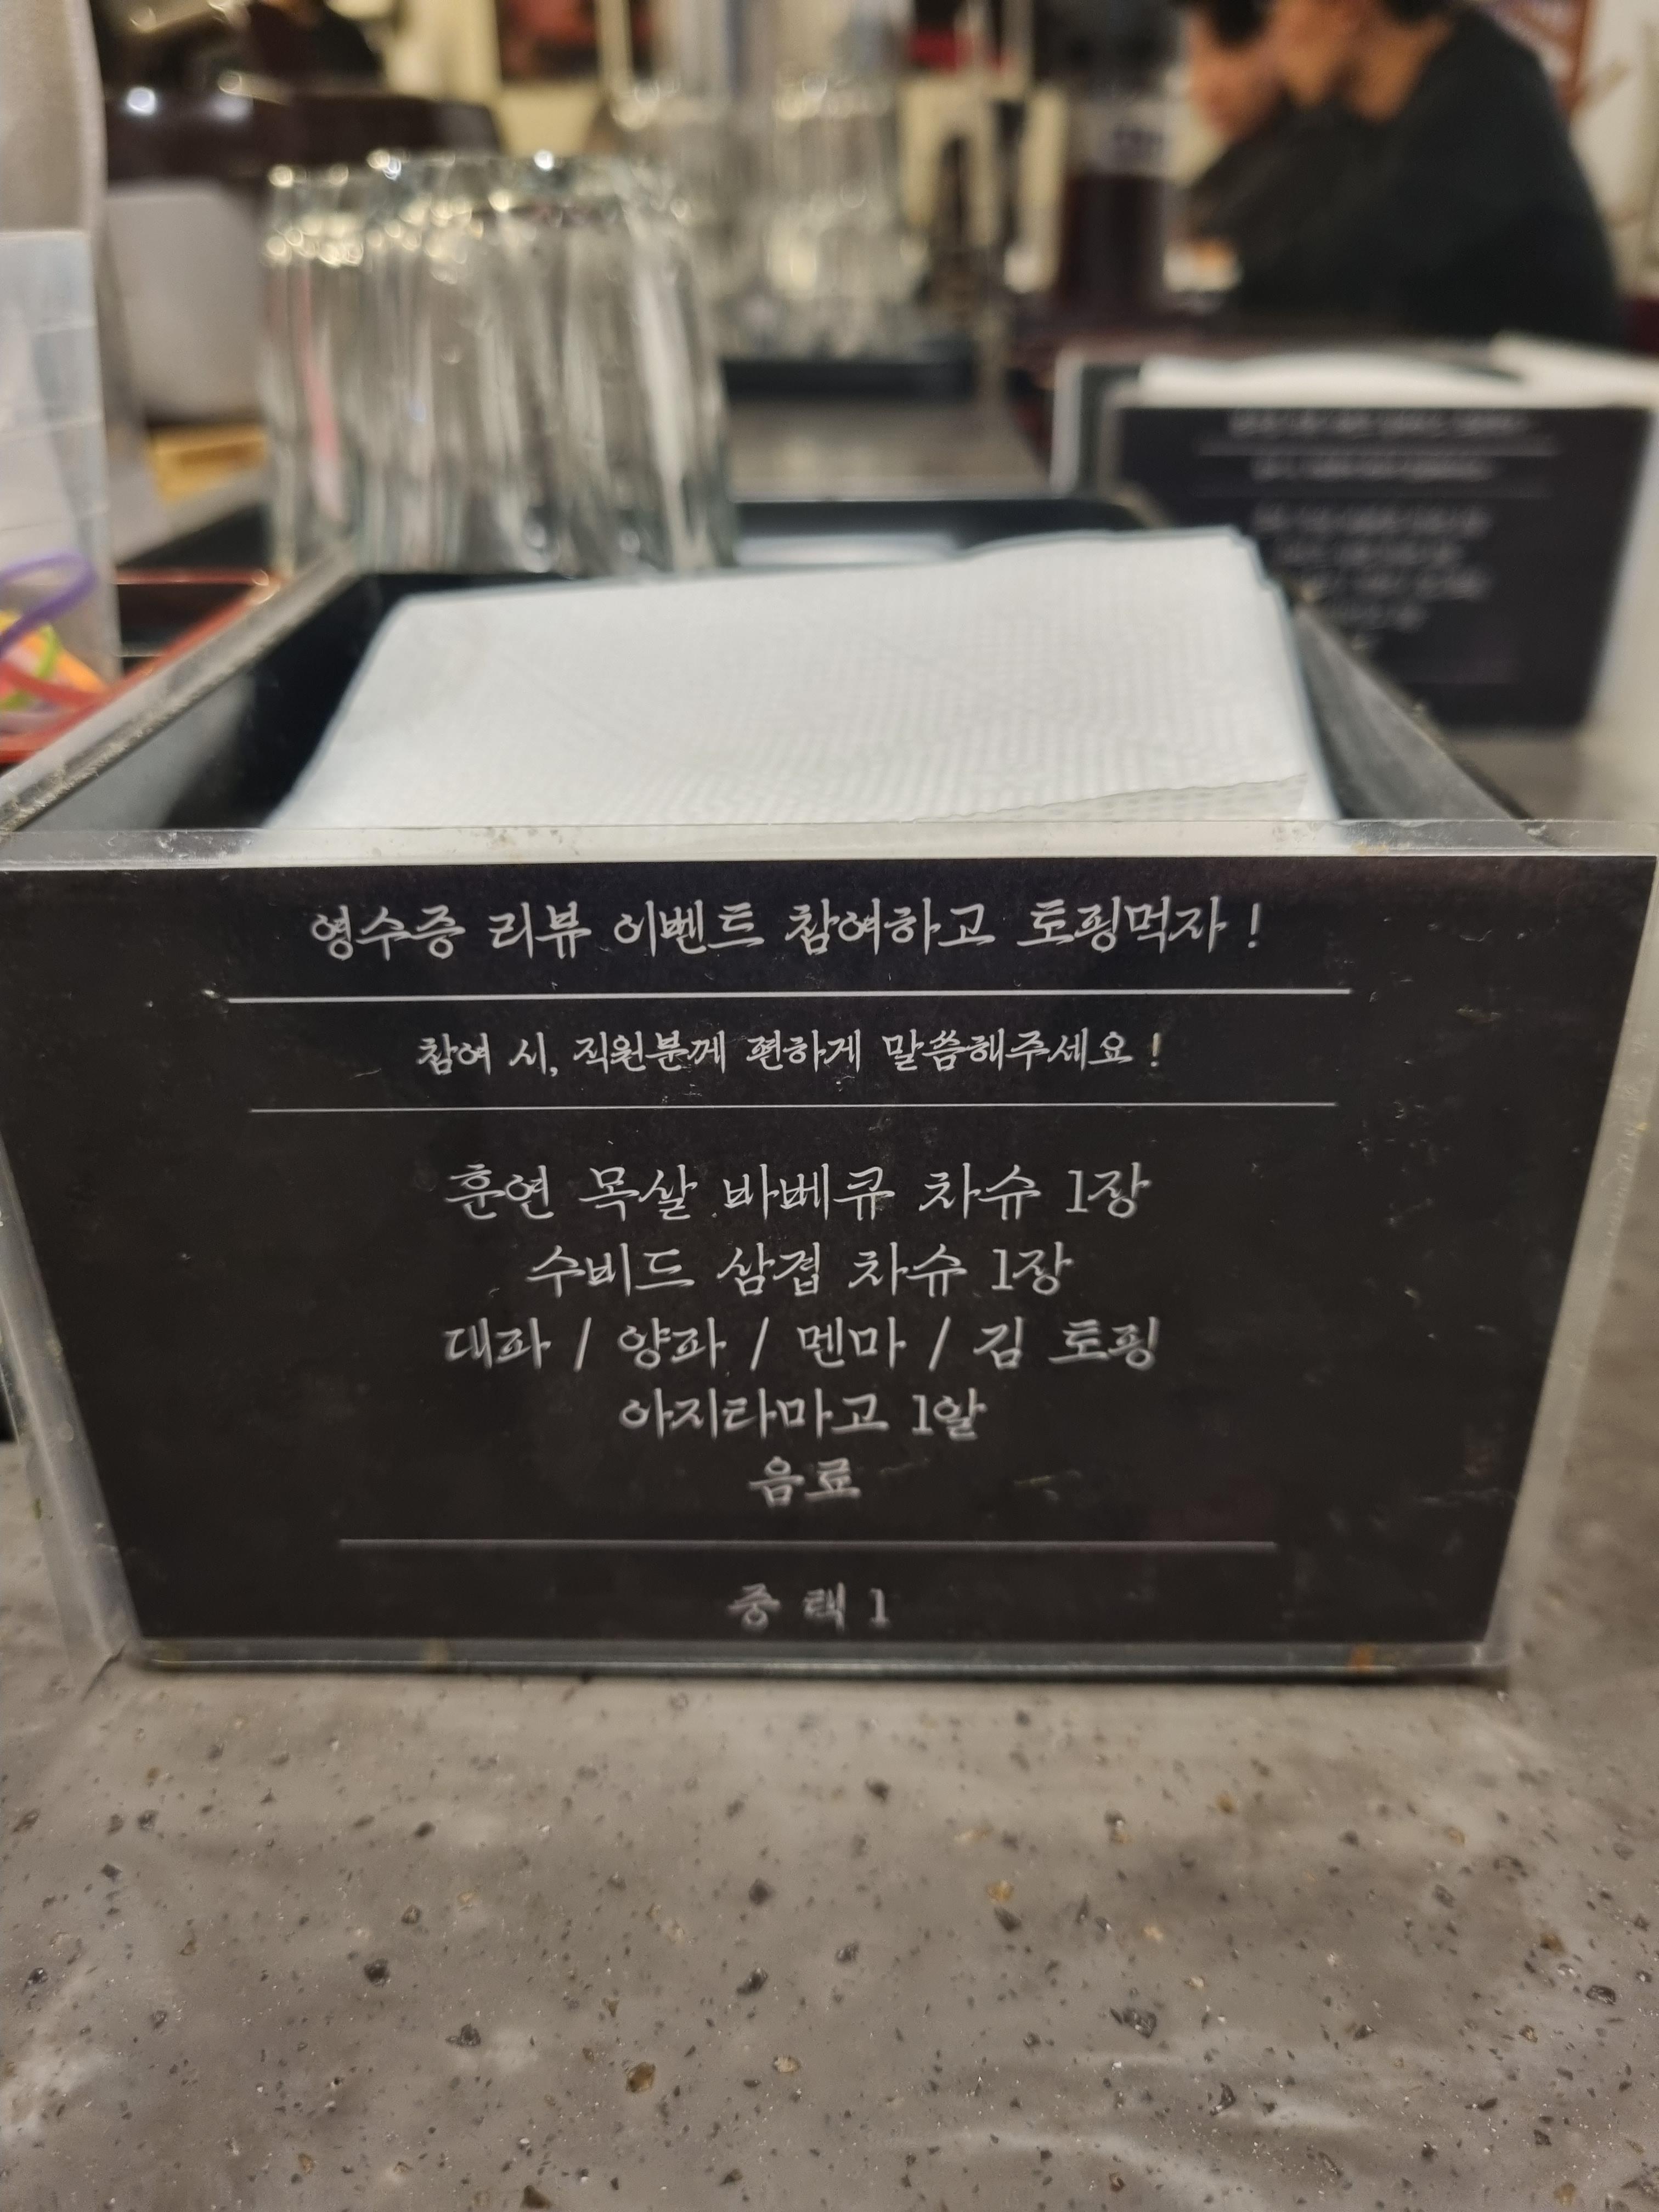 영수증 리뷰 이벤트 참여하고 토핑먹자 !
참여 시, 직원분께 편하게 말씀해주세요 !
훈연 목살 바베큐 차슈 1장
수비드 삼겹 차슈 1장
대파 / 양파 / 멘마 / 김 토핑
아지타마고 1알
음료
중 택 1